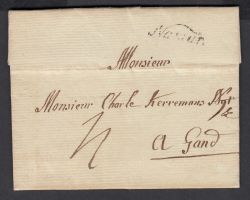 Monsieur
Monsieur Charle Kerremans
A Gand